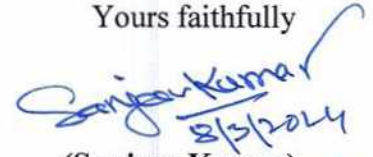 Yours faithfully
Sanjeev Kumar
8/3/2024
(Sanjeev Kumar)